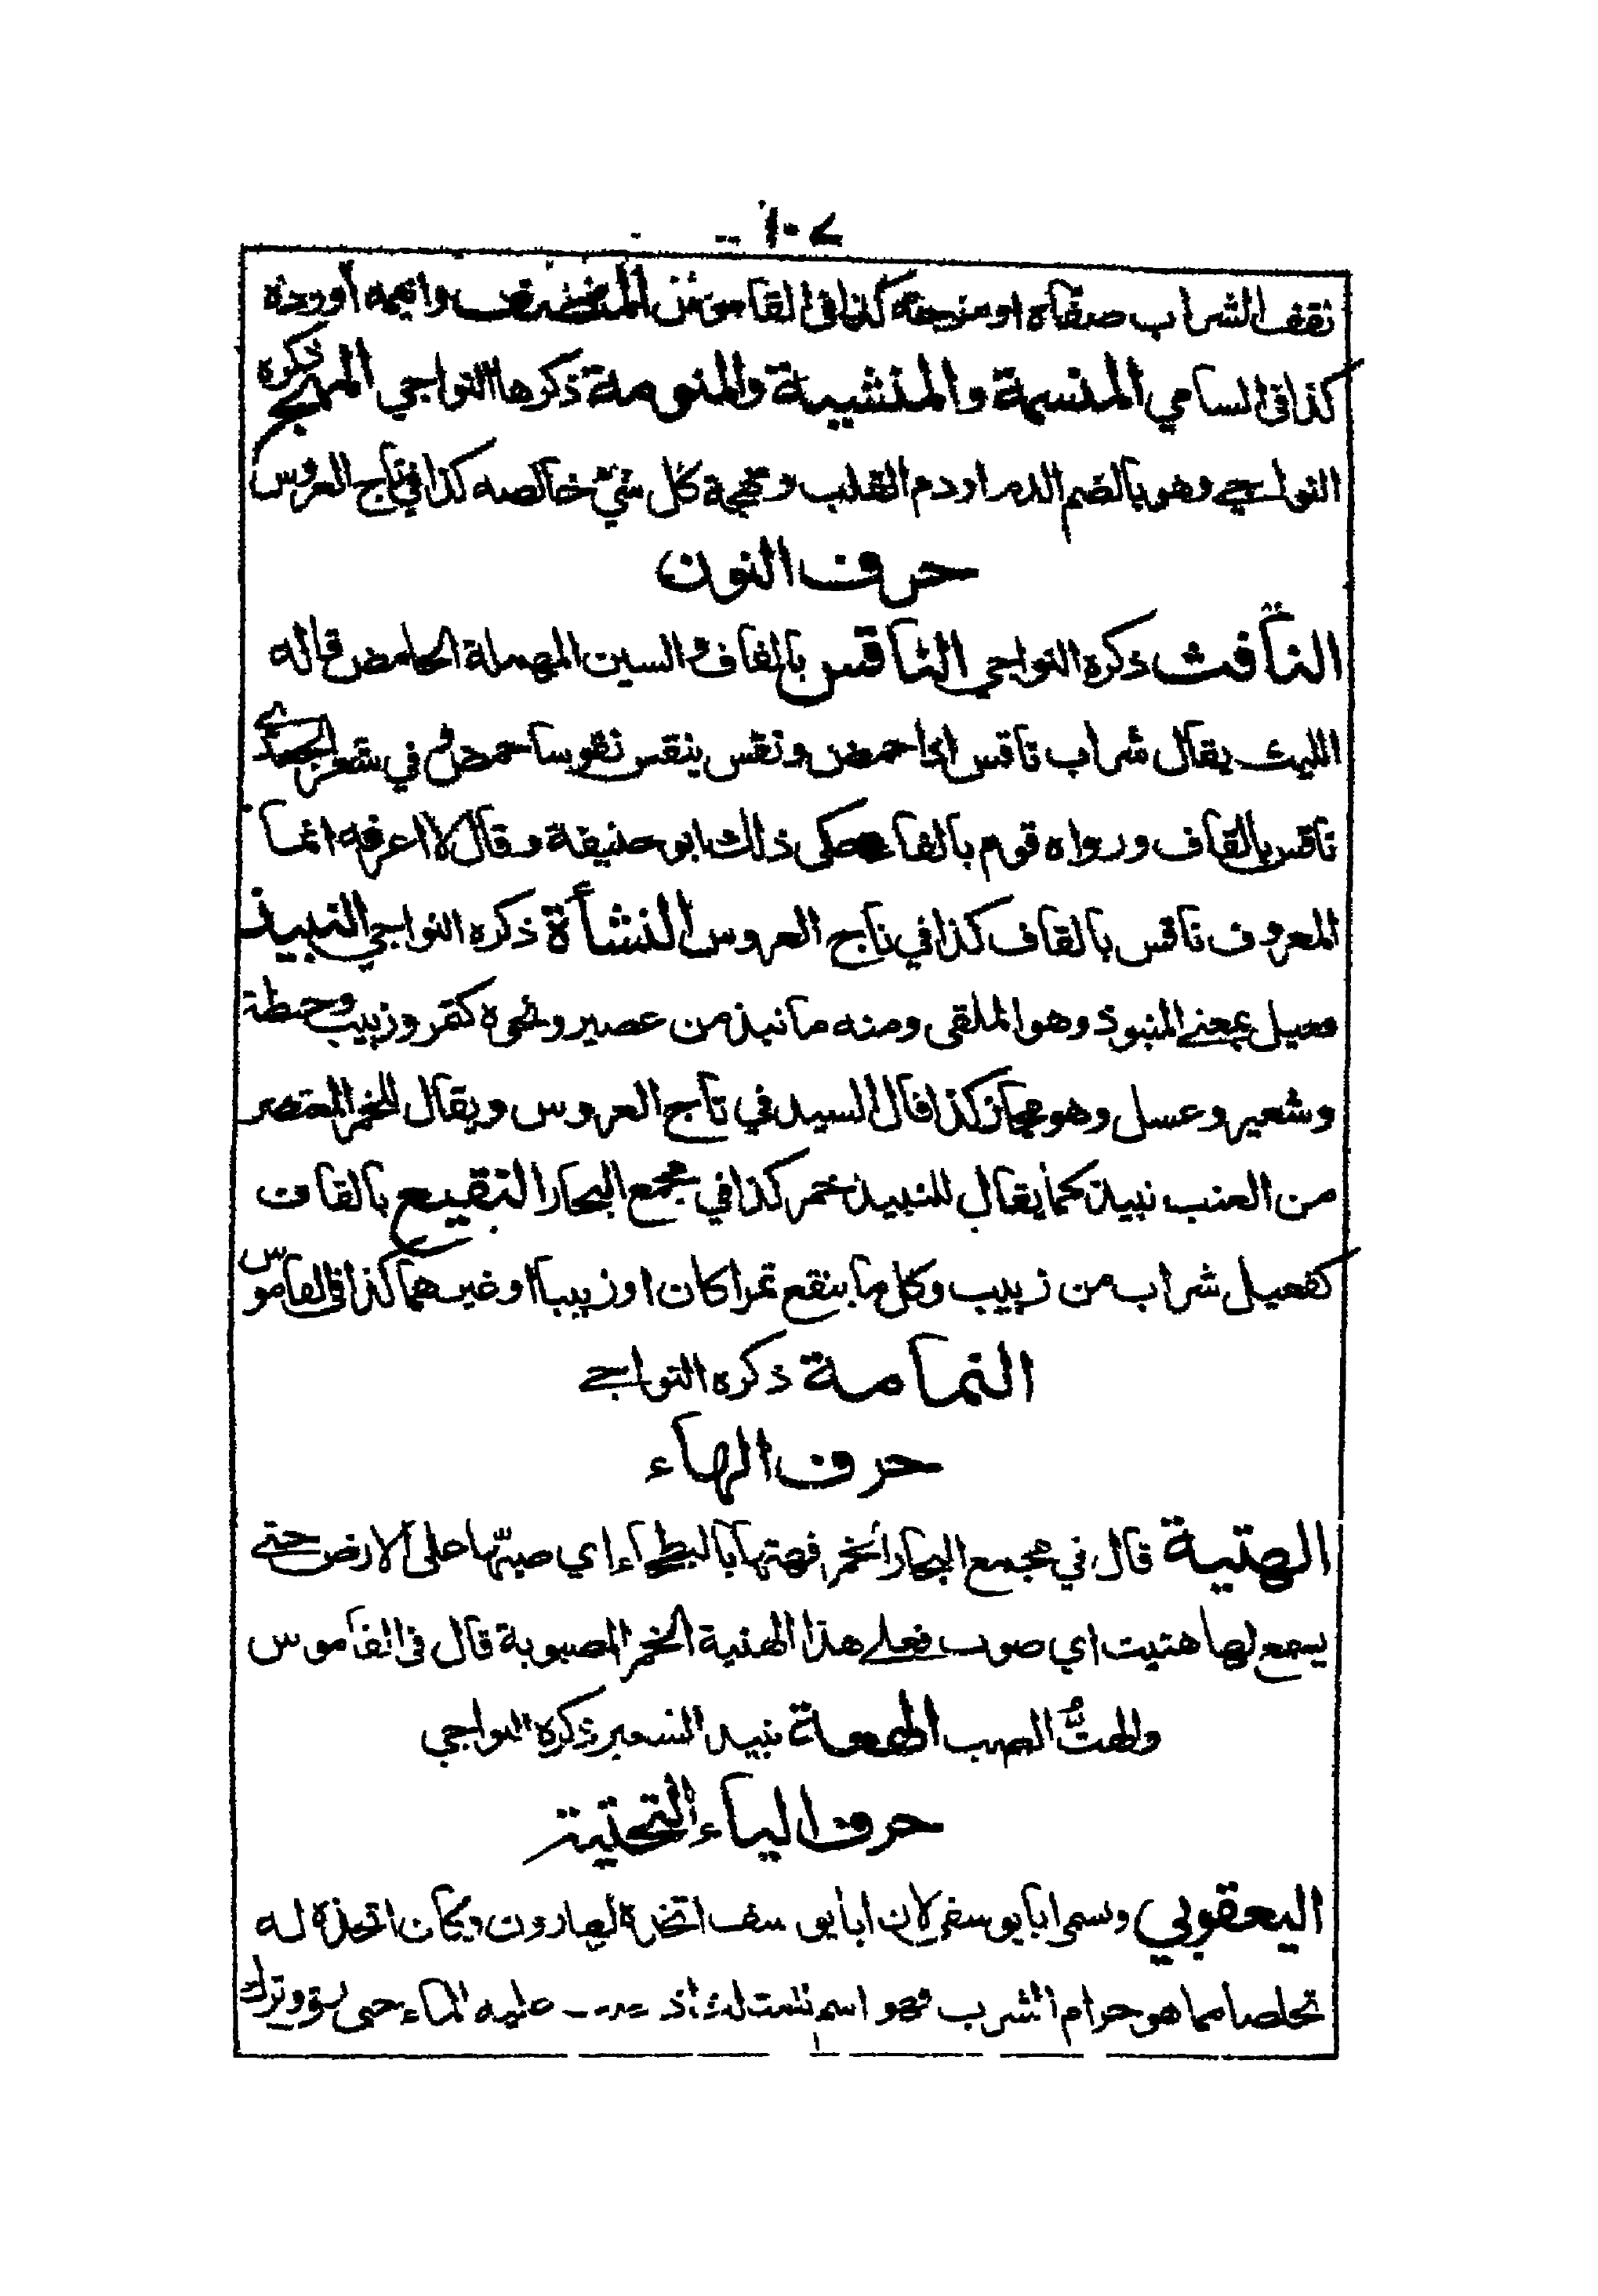 ثقف الشراب صفاه او مزجه كذا في القاموس المنصف وانيمه أورده
كذا في السامي المنسمة والمنشية والمنومة ذكرها النواجي المهج ذكره
النواجي وهو بالضم الدم او دم القلب ومهجة كل شئ خالصه كذا في تاج العروس
حرف النون
النافث ذكره النواجي الناقس بالقاف والسين المهملة الحامض قاله
الليث يقال شراب ناقس اذا حمض ونقس ينقس نقوسا حمض و في شعر الجعدي
ناقس بالقاف ورواه قوم بالفاء حكى ذلك ابو حنيفة وقال لا اعرفه انما
المعروف ناقس بالقاف كذا في تاج العروس النشأة ذكره النواجي النبيذ
فعيل بمعنى المنبوذ وهو الملقى ومنه ما نبذ من عصير ونحوه كتمر وزبيب وحنطة
وشعير وعسل وهو مجاز كذا قال السيد في تاج العروس ويقال للخمر المعتصر
من العنب نبيذ كما يقال للنبيذ خمر كذا في مجمع البحار النقيع بالقاف
كفعيل شراب من زبيب وكل ما ينقع تمرا كان او زبيبا او غيرهما كذا في القاموس
النمامة ذكره النواجي
حرف الهاء
الهتية قال في مجمع البحار الخمر فهتها بالبطحاء اي صبّها على الارض حتى
يسمع لها هتيت اي صوت فعلى هذا الهتية الخمر المصبوبة قال في القاموس
والهتُّ الصب الهمعة نبيذ الشعير ذكره النواجي
حرف الياء التحتية
اليعقوبي ويسمى ابا يوسفي لان ابا يوسف اتخذه لهارون وكان اتخذه له
تخلصا مما هو حرام الشرب فهو اسم عليه الماء حتى وترك